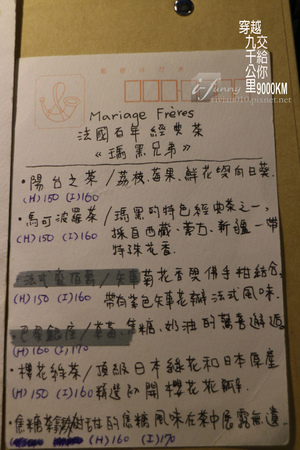 穿越九千公里
交給你
9000KM
i-Funny
Mariage Frères
法國百年經典茶
《瑪黑兄弟》
・陽台之茶/荔枝、莓果、鮮花與向日葵.
(H)150 (I)160
・馬可波羅茶/瑪黑的特色經典茶之一,
(H)150 (I)160 採自西藏、東方、新疆一帶
特殊花香.
菊花香與佛手柑結合,
(H)150 (I)160 帶有紫色矢車菊花瓣法式風味.
焦糖、奶油的驚喜邂逅
(H)160 (I)170
・櫻花綠茶/頂級日本綠花和日本原產
(H)150 (I)160 精選初開櫻花花瓣.
・焦糖茶 甜的焦糖風味在茶中展露無遺.
(H)160 (I)170